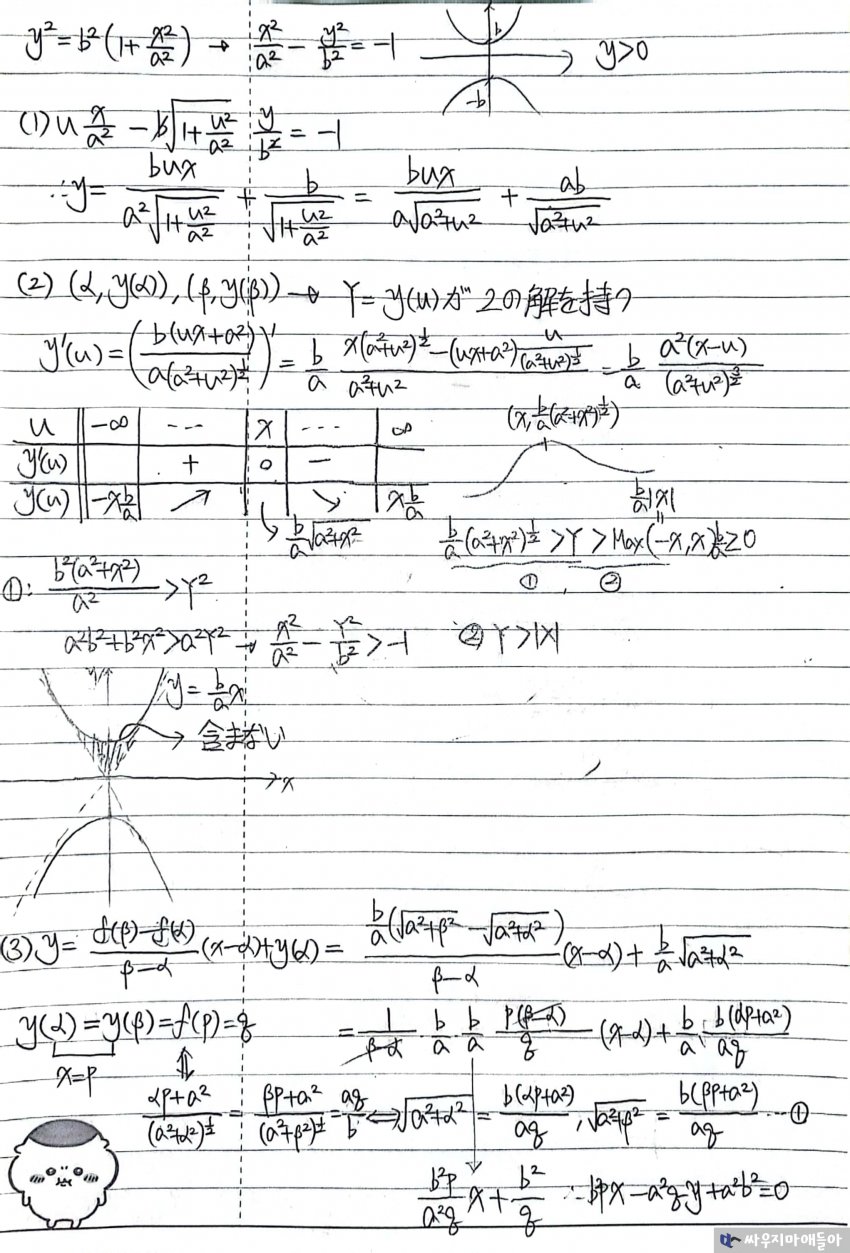 y² = b²(1+x²/a²) → x²/a² - y²/b² = -1
b
-b
y>0
(1) u x/a² - b√(1+u²/a²) y/b² = -1
∴y = bux/(a²√(1+u²/a²)) + b/√(1+u²/a²) = bux/(a√(a²+u²)) + ab/√(a²+u²)
(2) (α, y(α)), (β, y(β)) → Y = y(u)が 2の解を持つ
y'(u) = (b(ux+a²)/(a(a²+u²)^½))' = b/a (x(a²+u²)^½-(ux+a²) u/(a²+u²)^½)/(a²+u²) = b/a a²(x-u)/(a²+u²)^(3/2)
u -∞ --- x --- ∞
y'(u) + 0 -
y(u) -x b/a ↗ ↘ x b/a
↳ b/a √(a²+x²)
(x, b/a (a²+x²)^½)
b/a |x|
b/a (a²+x²)^½ > Y > Max(-x, x) b/a ≥ 0
① , ②
①: b²(a²+x²)/a² > Y²
a²b²+b²x² > a²Y² → x²/a² - Y²/b² > -1 ② Y>|X|
y = b/a x
→ 含まない
x
(3) y = (f(β)-f(α))/(β-α) (x-α)+y(α) = b/a (√(a²+β²) - √(a²+α²))/(β-α) (x-α) + b/a √(a²+α²)
y(α) = y(β) = f(p) = q = 1/(β-α) b/a · b/a p(β-α)/q (x-α) + b/a · b(αp+a²)/aq
x=p
⇕
(αp+a²)/(a²+α²)^½ = (βp+a²)/(a²+β²)^½ = aq/b ⇔ √(a²+α²) = b(αp+a²)/aq , √(a²+β²) = b(βp+a²)/aq ... ①
b²p/a²q x + b²/q ∴ b²px - a²qy + a²b² = 0
싸우지마애들아